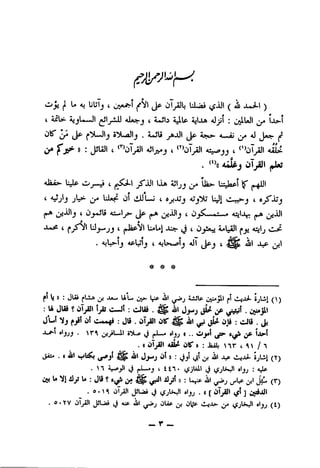 بسم الله الرحمن الرحيم
( الحمد لله ) الذي فضلنا بالقرآن على الأمم أجمعين ، وآتانا به ما لم يؤت
أحداً من العالمين : أنزله هداية عالمية دائمة ، وجعله للشرائع السماوية خاتمة ،
ثم جعل له من نفسه حجة على الدهر قائمة . والصلاة والسلام على مَنْ كان
خُلُقه القرآن(١) ، ووصيته القرآن(٢) ، وميراثه القرآن(٣) ، القائل : « خيركم من
تعلم القرآن وعلَّمه »(٤) .
اللهم كما أعطيتنا حظاً من وراثة هذا الذكر الحكيم ، فيسرت علينا حفظه
وتذكره ، وحببت إلينا تلاوته وتدبره ، نسألك أن تجعلنا من خيار وارثيه ،
الذين هم بهدايته مستمسكون ، والذين هم على حراسته قائمون ، والذين هم
تحت رايته يوم القيامة يبعثون ، في جند إمامنا الأعظم ، ورسولنا الأكرم ، محمد
ابن عبد الله ﷺ ، وعلى آله وأصحابه ، وأتباعه وأحبابه .
* * *
(١) إشارة لحديث أم المؤمنين عائشة رضي الله عنها حين سألها سعد بن هشام فقال : « يا أم
المؤمنين . أنبئيني عن خُلُق رسول الله ﷺ . فقالت : ألست تقرأ القرآن ؟ فقال لها :
بلى . قالت : فإن خُلُق نبي الله ﷺ كان القرآن . قال : فهممت أن أقوم ولا أسأل
أحداً عن شيء حتى أموت .. » رواه مسلم في صلاة المسافرين ١٣٩ . ورواه أحمد
٦ / ٩١ ، ١٦٣ بلفظ : « كان خُلُقه القرآن » .
(٢) إشارة لحديث عبد الله بن أبي أوفى : « أن رسول الله ﷺ أوصى بكتاب الله » . متفق
عليه : رواه البخاري في المغازي ٤٤٦٠ ، ومسلم في الوصية ١٦ .
(٣) سئل ابن عباس رضي الله عنهما : « أترك النبي ﷺ من شيء ؟ قال : ما ترك إلا ما بين
الدفتين [ أي القرآن ] » . رواه البخاري في فضائل القرآن ٥٠١٩ .
(٤) رواه البخاري من حديث عثمان بن عفان رضي الله عنه في فضائل القرآن ٥٠٢٧ .
- ٣ -